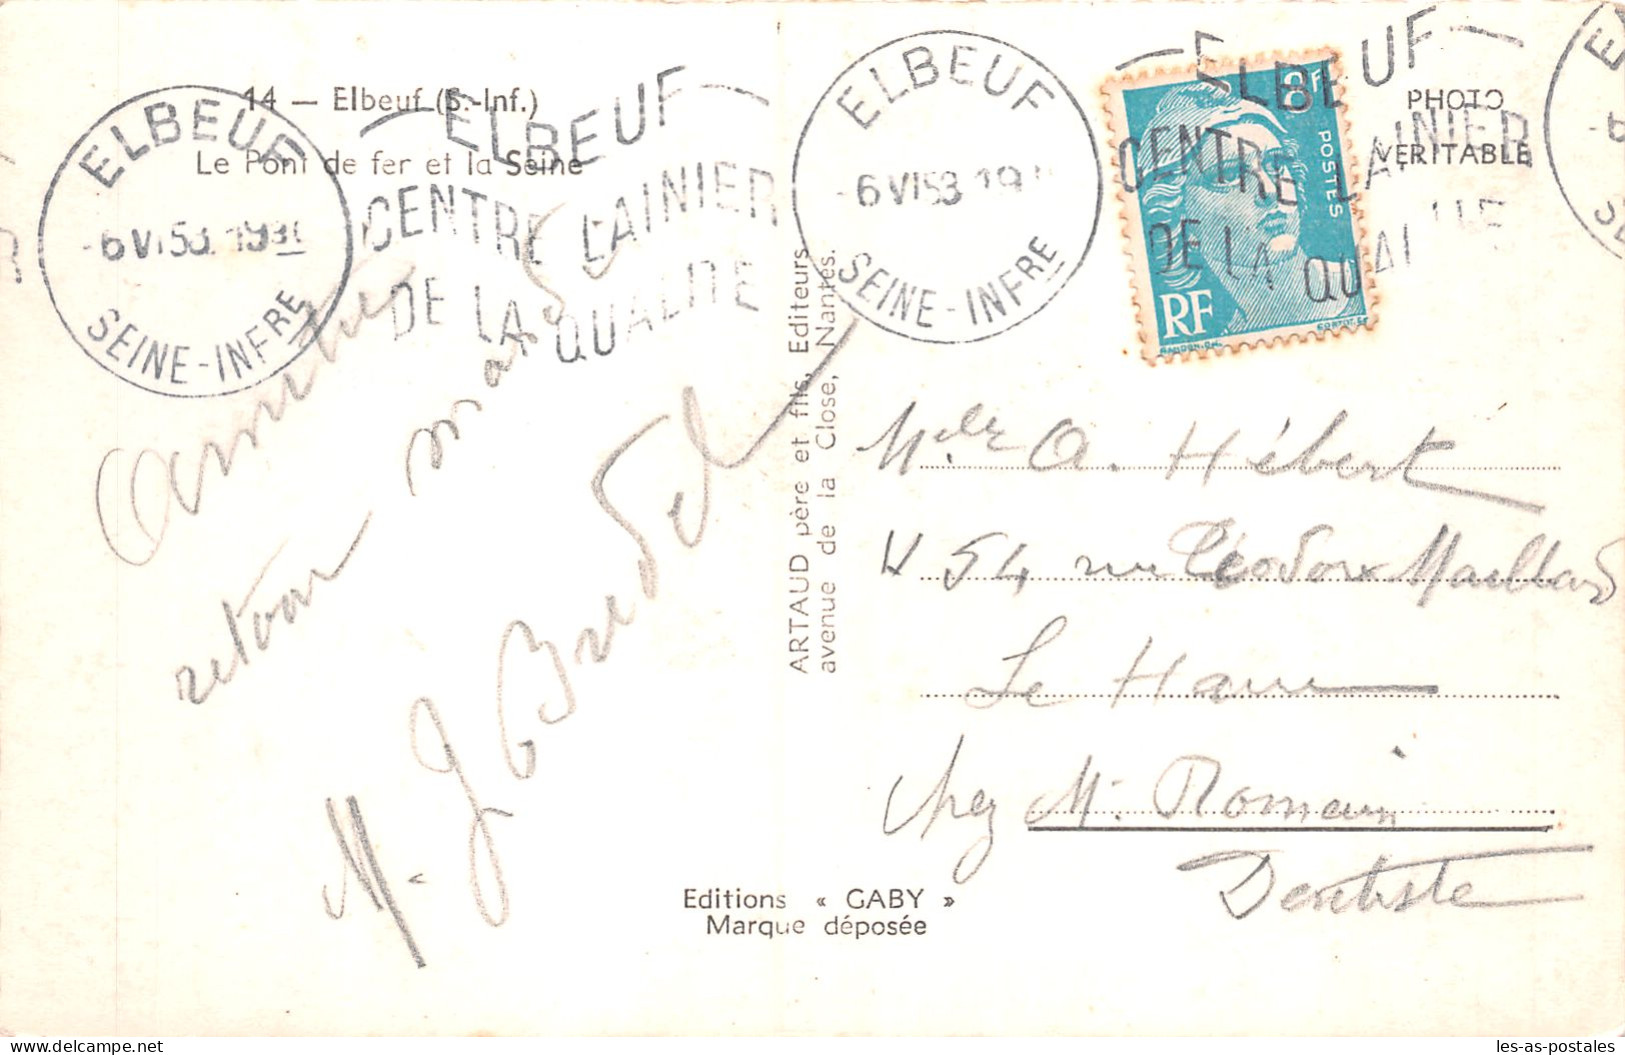 14 — Elbeuf (S.-Inf.)
Le Pont de fer et la Seine
ELBEUF
-6 VI 53
SEINE-INFRE
ELBEUF
CENTRE LAINIER
DE LA QUALITE
ELBEUF
-6 VI 53 19
SEINE-INFRE
ELBEUF
CENTRE LAINIER
DE LA QUALITE
8F
POSTES
RF
PHOTO
VERITABLE
Amitié
retour mardi
M. J Brudel
ARTAUD père et fils, Editeurs
avenue de la Close, Nantes.
Melle A. Hébert
54 rue Téodore Maillard
Le Havre
chez Mr. Romain
Dentiste
Editions « GABY »
Marque déposée
les-as-postales